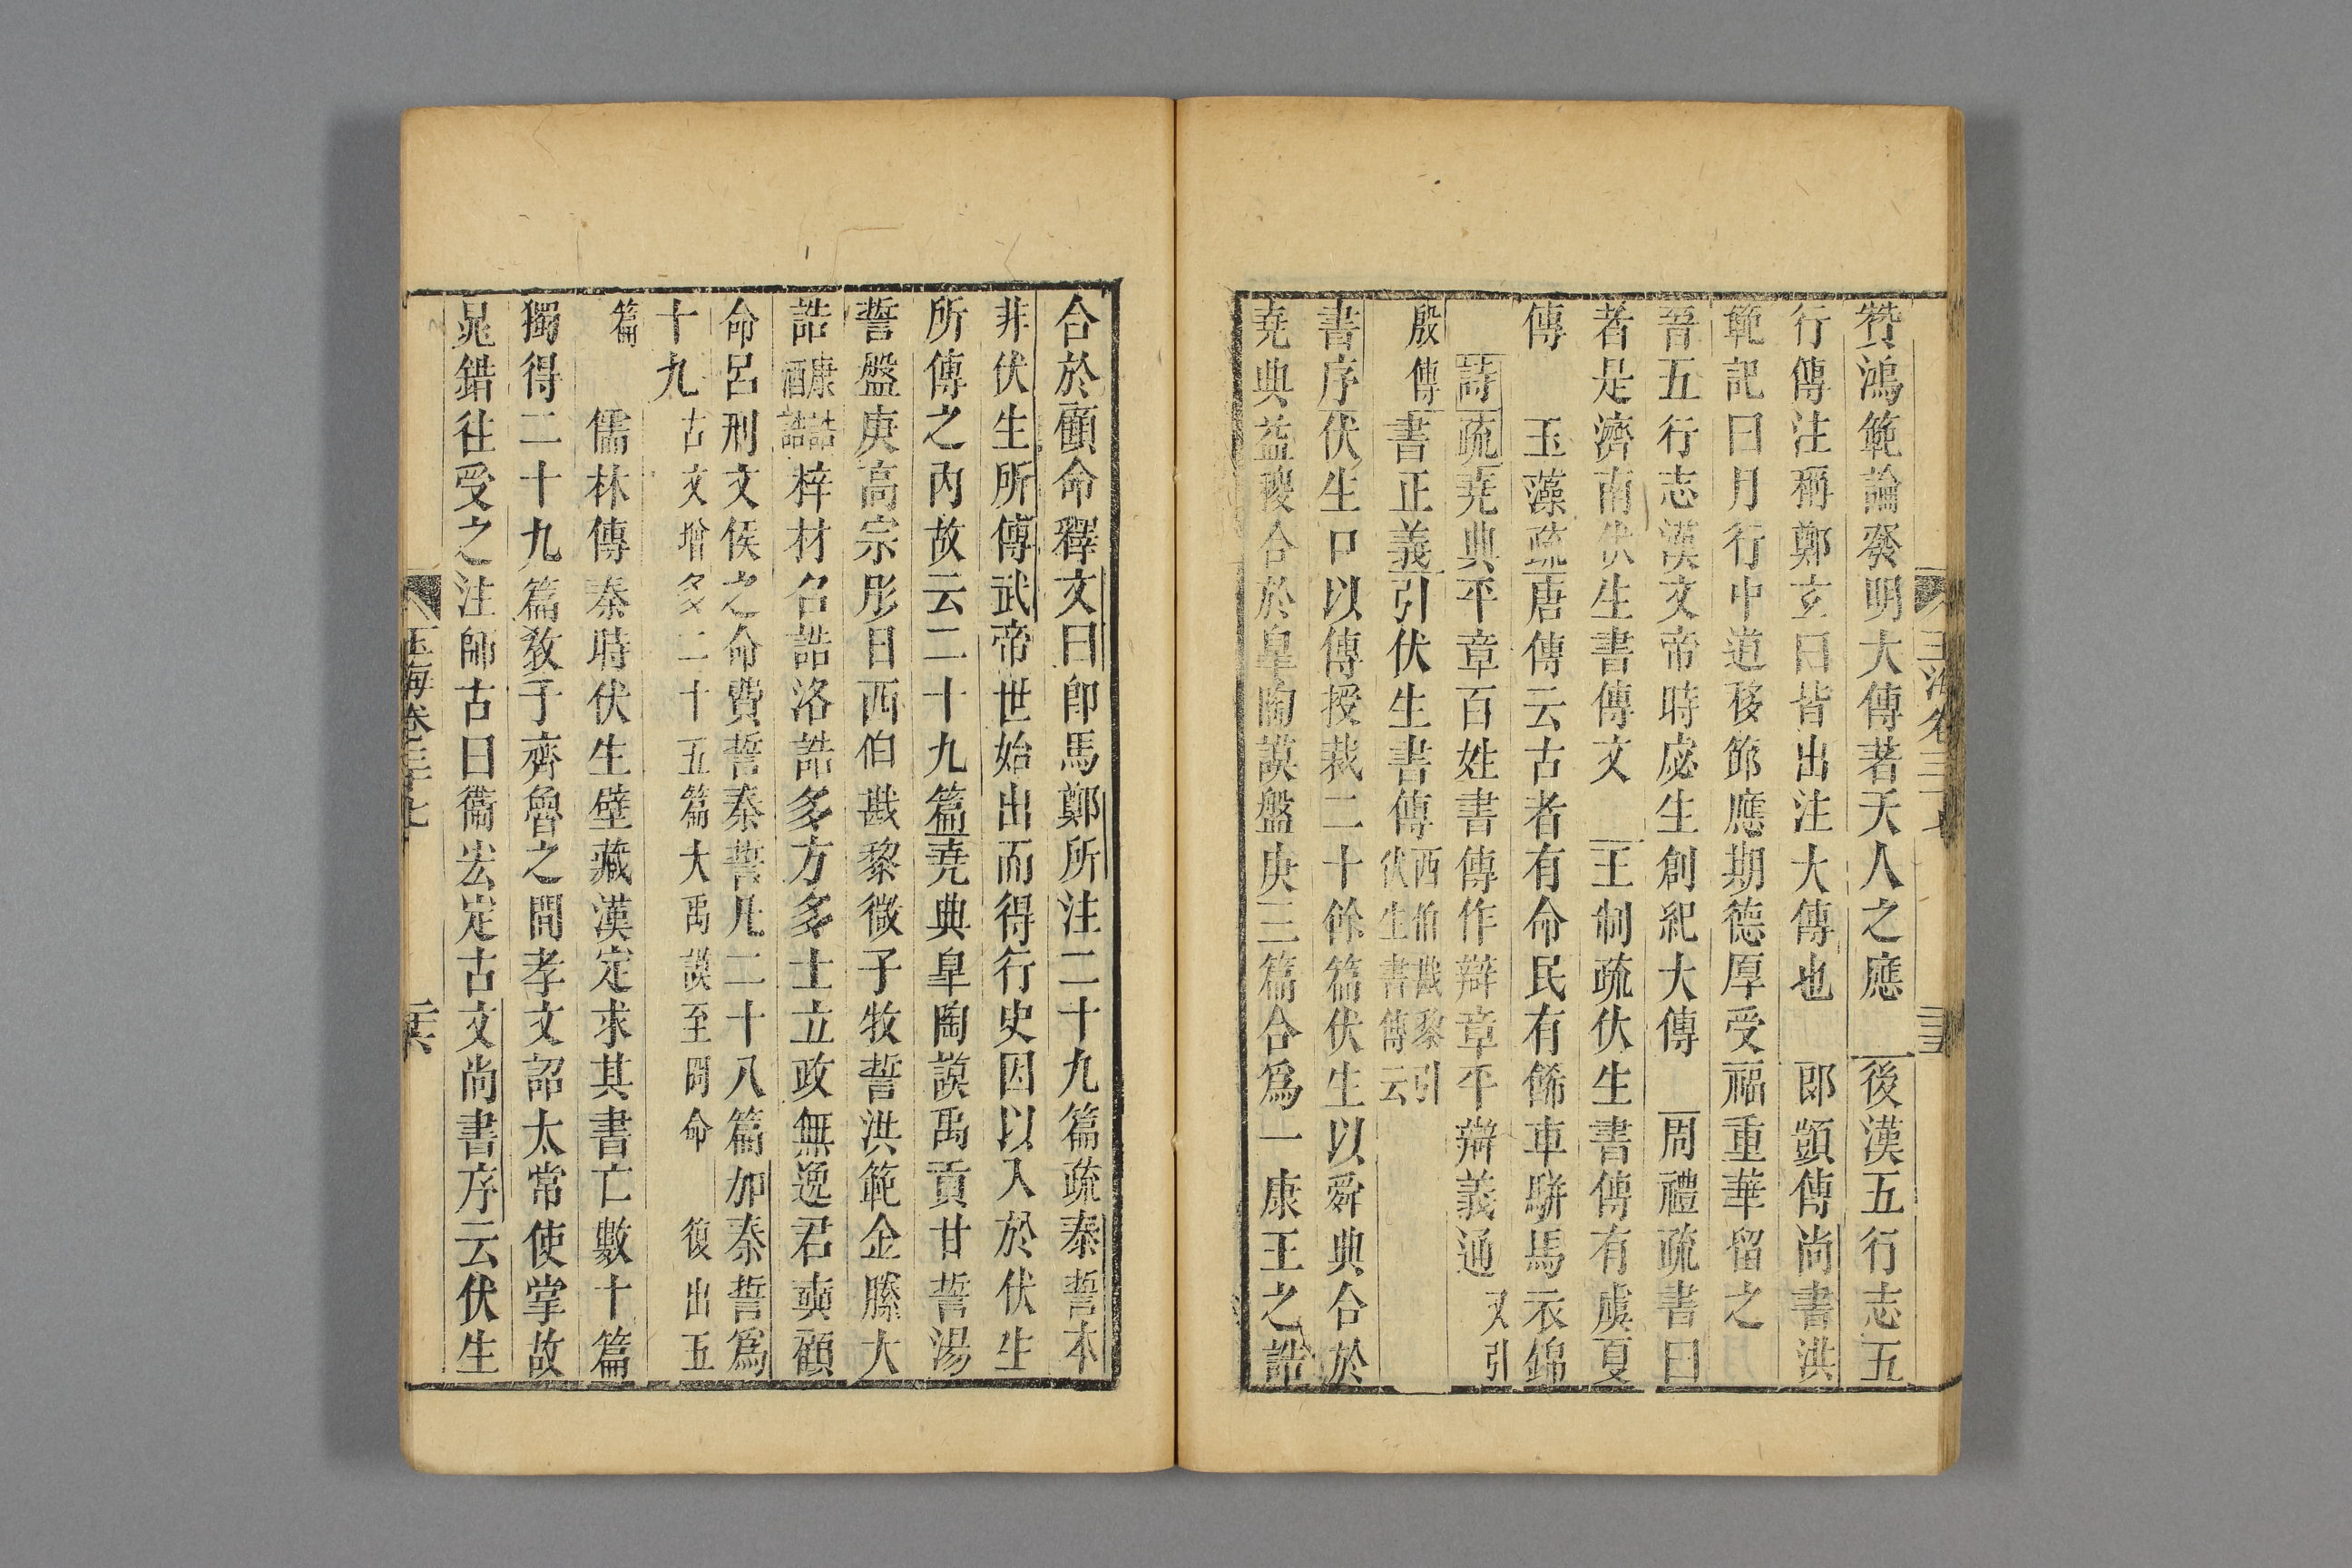 玉海卷三十七
贊鴻範論發明大傳著天人之應 後漢五行志五
行傳注稱鄭玄曰皆出注大傳也 郎顗傳尚書洪
範記曰月行中道移節應期德厚受福重華留之
晉五行志漢文帝時宓生創紀大傳 周禮疏書曰
者是濟南伏生書傳文 王制疏伏生書傳有虞夏
傳 玉藻疏唐傳云古者有命民有餙車駢馬衣錦
詩疏堯典平章百姓書傳作辯章平辯義通 又引
殷傳 書正義引伏生書傳西伯戡黎引伏生書傳云
書序伏生口以傳授裁二十餘篇伏生以舜典合於
堯典益稷合於臯陶謨盤庚三篇合爲一康王之誥
合於顧命釋文曰卽馬鄭所注二十九篇疏泰誓本
非伏生所傳武帝世始出而得行史因以入於伏生
所傳之內故云二十九篇堯典臯陶謨禹貢甘誓湯
誓盤庚高宗肜日西伯戡黎微子牧誓洪範金縢大
誥康誥酒誥梓材召誥洛誥多方多士立政無逸君奭顧
命呂刑文侯之命費誓秦誓凡二十八篇加泰誓爲
十九 古文增多二十五篇大禹謨至冏命 復出五
篇 儒林傳秦時伏生壁藏漢定求其書亡數十篇
獨得二十九篇敎于齊魯之間孝文詔太常使掌故
晁錯往受之注師古曰衞宏定古文尚書序云伏生
玉海卷三十七